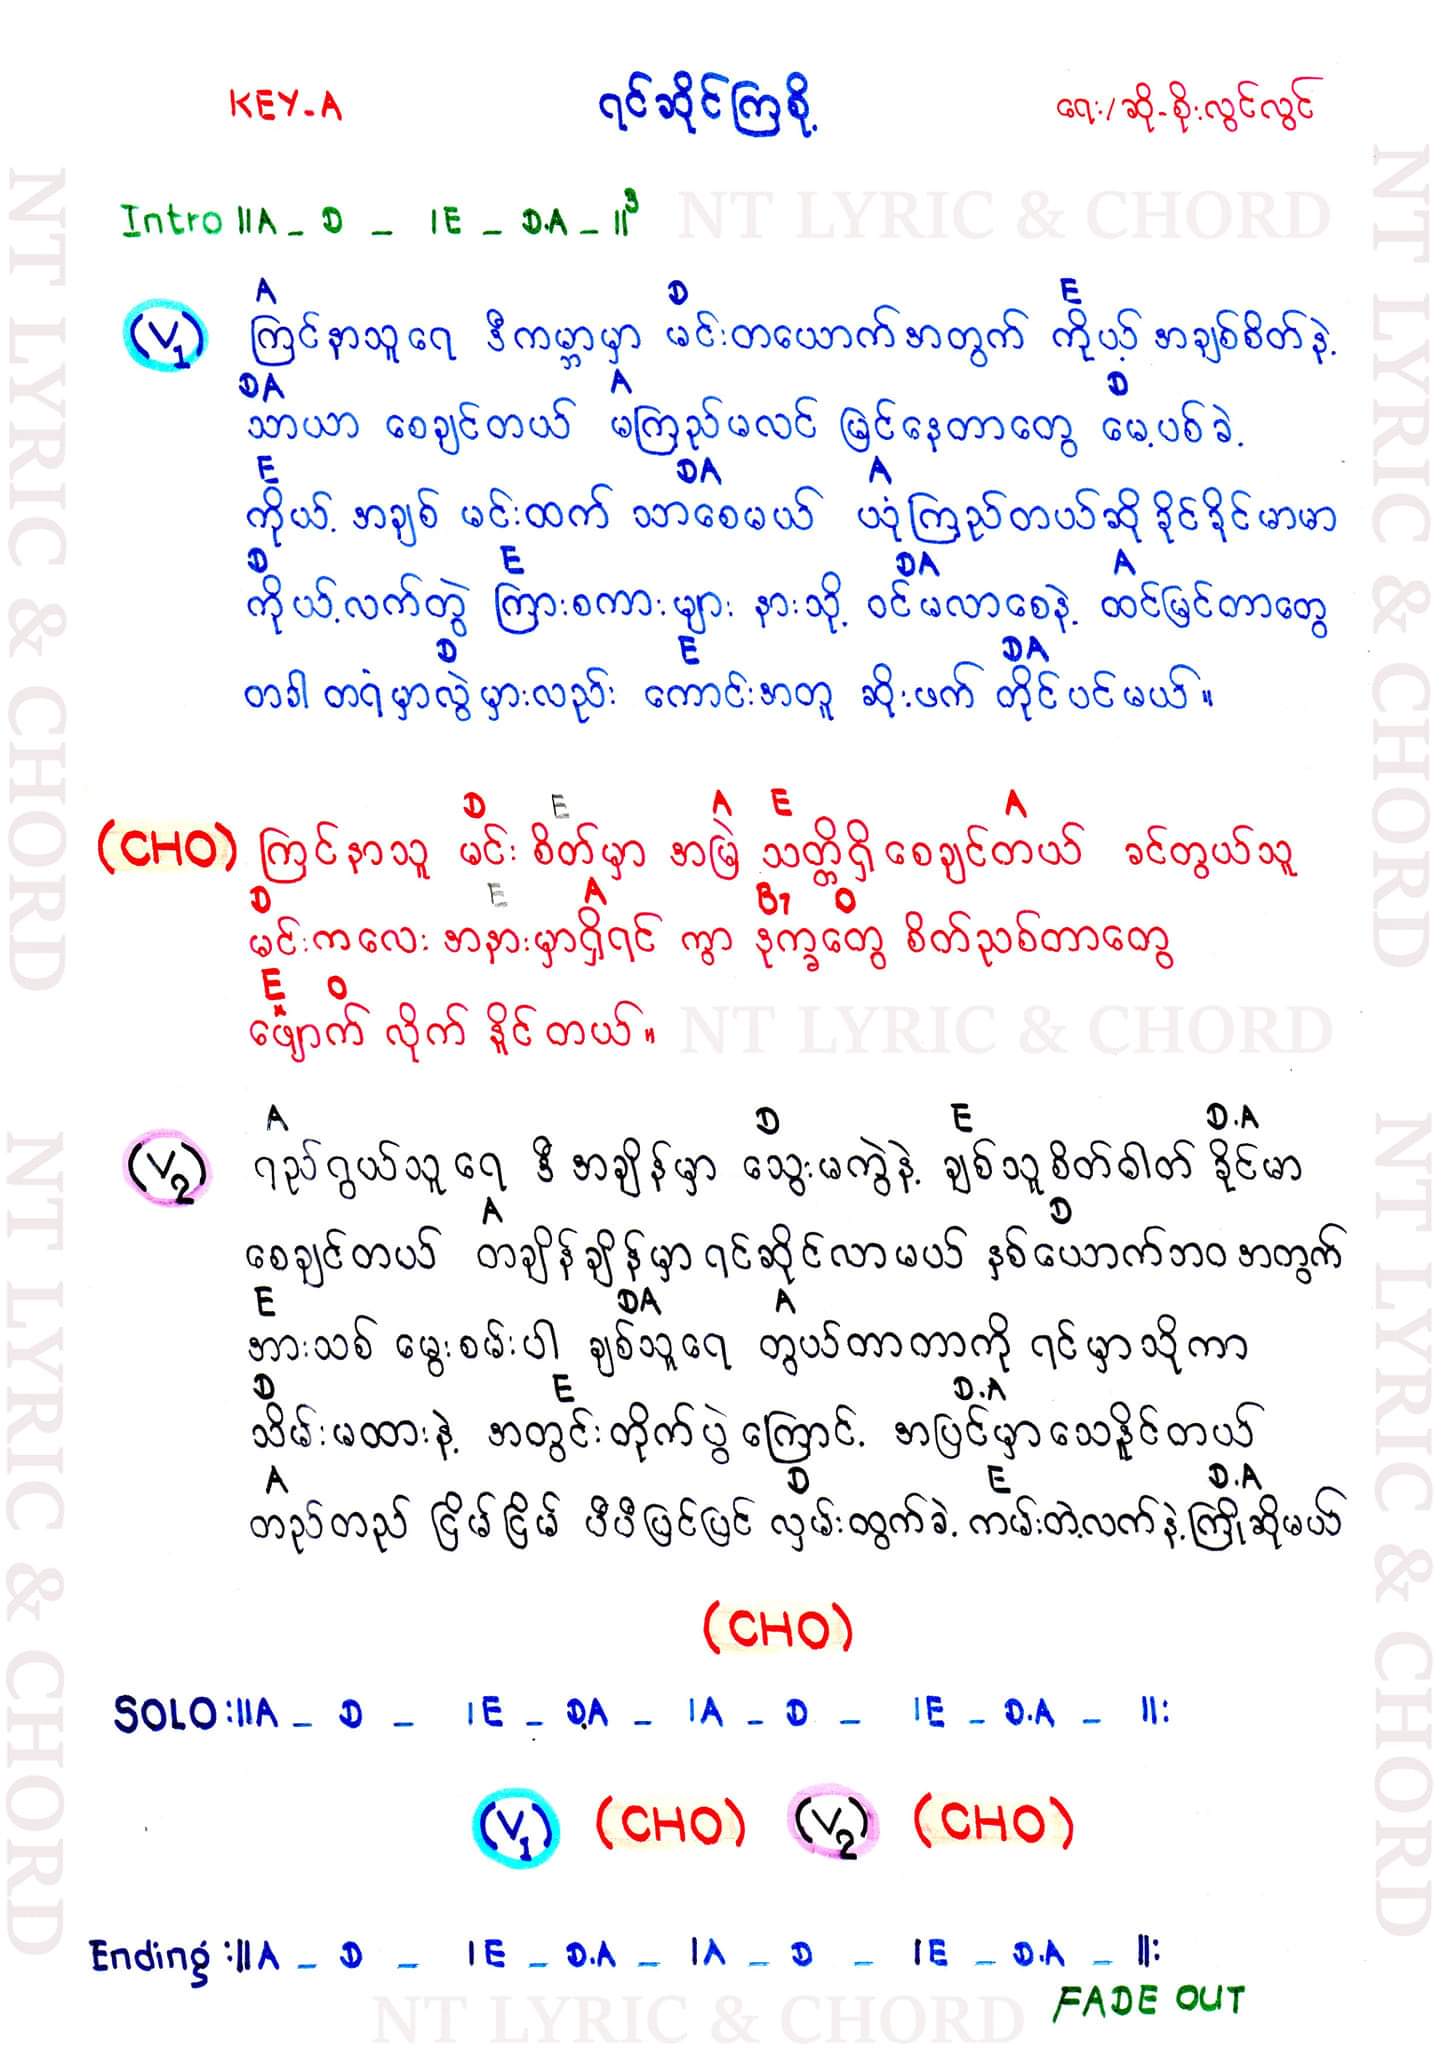 KEY-A ရင်ဆိုင်ကြစို့ ရေး/ဆို-စိုးလွင်လွင်
Intro ||A _ D _ |E _ D.A _ ||3
NT LYRIC & CHORD
A D E
(V1) ကြင်နာသူရေ ဒီကမ္ဘာမှာ မင်းတယောက်အတွက် ကိုယ့် အချစ်စိတ်နဲ့
DA A D
သာယာ စေချင်တယ် မကြည်မလင် မြင်နေတာတွေ မေ့ပစ်ခဲ့
E DA A
ကိုယ့် အချစ် မင်းထက် သာစေမယ် ယုံကြည်တယ်ဆို ခိုင်ခိုင်မာမာ
D E DA A
ကိုယ့်လက်တွဲ ကြားစကားများ နားသို့ ဝင်မလာစေနဲ့ ထင်မြင်တာတွေ
D E DA
တခါ တရံမှာလွဲမှားလည်း ကောင်းအတူ ဆိုးဖက် တိုင်ပင်မယ်။
D E A E A
(CHO) ကြင်နာသူ မင်း စိတ်မှာ အမြဲ သတ္တိရှိ စေချင်တယ် ခင်တွယ်သူ
D E A B7 D
မင်းကလေး အနားမှာရှိရင် ကွာ ဒုက္ခတွေ စိတ်ညစ်တာတွေ
E D
ဖျောက် လိုက် နိူင်တယ်။
NT LYRIC & CHORD
A D E D.A
(V2) ရည်ရွယ်သူရေ ဒီ အချိန်မှာ သွေးမကွဲနဲ့ ချစ်သူစိတ်ဓါတ် ခိုင်မာ
A D
စေချင်တယ် တချိန်ချိန်မှာ ရင်ဆိုင်လာမယ် နှစ်ယောက်ဘဝအတွက်
E DA A
အားသစ် မွေးစမ်းပါ ချစ်သူရေ တွယ်တာတာကို ရင်မှာသိုကာ
D E D.A
သိမ်းမထားနဲ့ အတွင်းတိုက်ပွဲကြောင့် အပြင်မှာသေနိူင်တယ်
A D E D.A
တည်တည် ငြိမ်ငြိမ် ပီပီပြင်ပြင် လှမ်းထွက်ခဲ့ ကမ်းတဲ့လက်နဲ့ကြိုဆိုမယ်
(CHO)
SOLO :||A _ D _ |E _ D.A _ |A _ D _ |E _ D.A _ ||:
(V1) (CHO) (V2) (CHO)
Ending :||A _ D _ |E _ D.A _ |A _ D _ |E _ D.A _ ||:
FADE OUT
NT LYRIC & CHORD
NT LYRIC & CHORD
NT LYRIC & CHORD
NT LYRIC & CHORD
NT LYRIC & CHORD